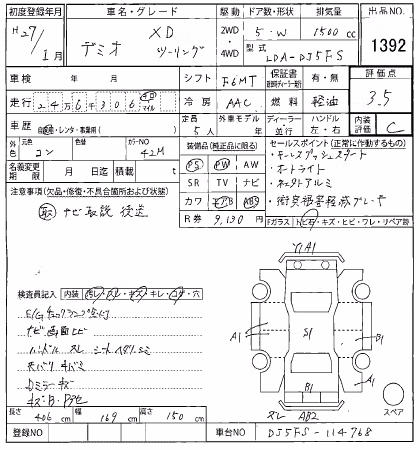 初度登録年月 車名・グレード 駆動 ドア数・形状 排気量 出品NO.
H27/1月 デミオ XD ツーリング 2WD・4WD 5・W 1500cc 1392
型式 LDA-DJ5FS
車検 年 月 シフト F6MT 保証書 有・無 評価点
走行 246,306 キロ マイル 冷房 AAC 燃料 軽油 3.5
車歴 自家用・レンタ・事業用( ) 定員 5人 外車モデル 年 ディーラー 並行 ハンドル 左・右 内装評価 C
外色 元色 コン 色替 カラーNO 42M 装備品(純正品に限る) セールスポイント(正常に作動するもの)
名義変更期限 月 日迄 積載 t PS PW AW
・キーレスプッシュスタート
注意事項(欠品・修復・不具合箇所および状態) SR TV ナビ
・オートライト
取 ナビ取説 後送 カワ エアB ABS
・社外アルミ
・衝突被害軽減ブレーキ
R券 9,130円 Fガラス トビ石・キズ・ヒビ・ワレ・リペア跡
YA1
検査員記入 内装 汚レ・スレ・キズ・キレ・コゲ・穴
E/Gチェックランプ点灯
ナビ画面ヒビ
ハンドル スレ シートヘタリ シミ
天バリ
Dミラーキズ
A1 S1 B1
B1 A1
スレ AB2 スペア
長さ 406cm 幅 169cm 高さ 150cm
登録NO 車台NO DJ5FS-114768